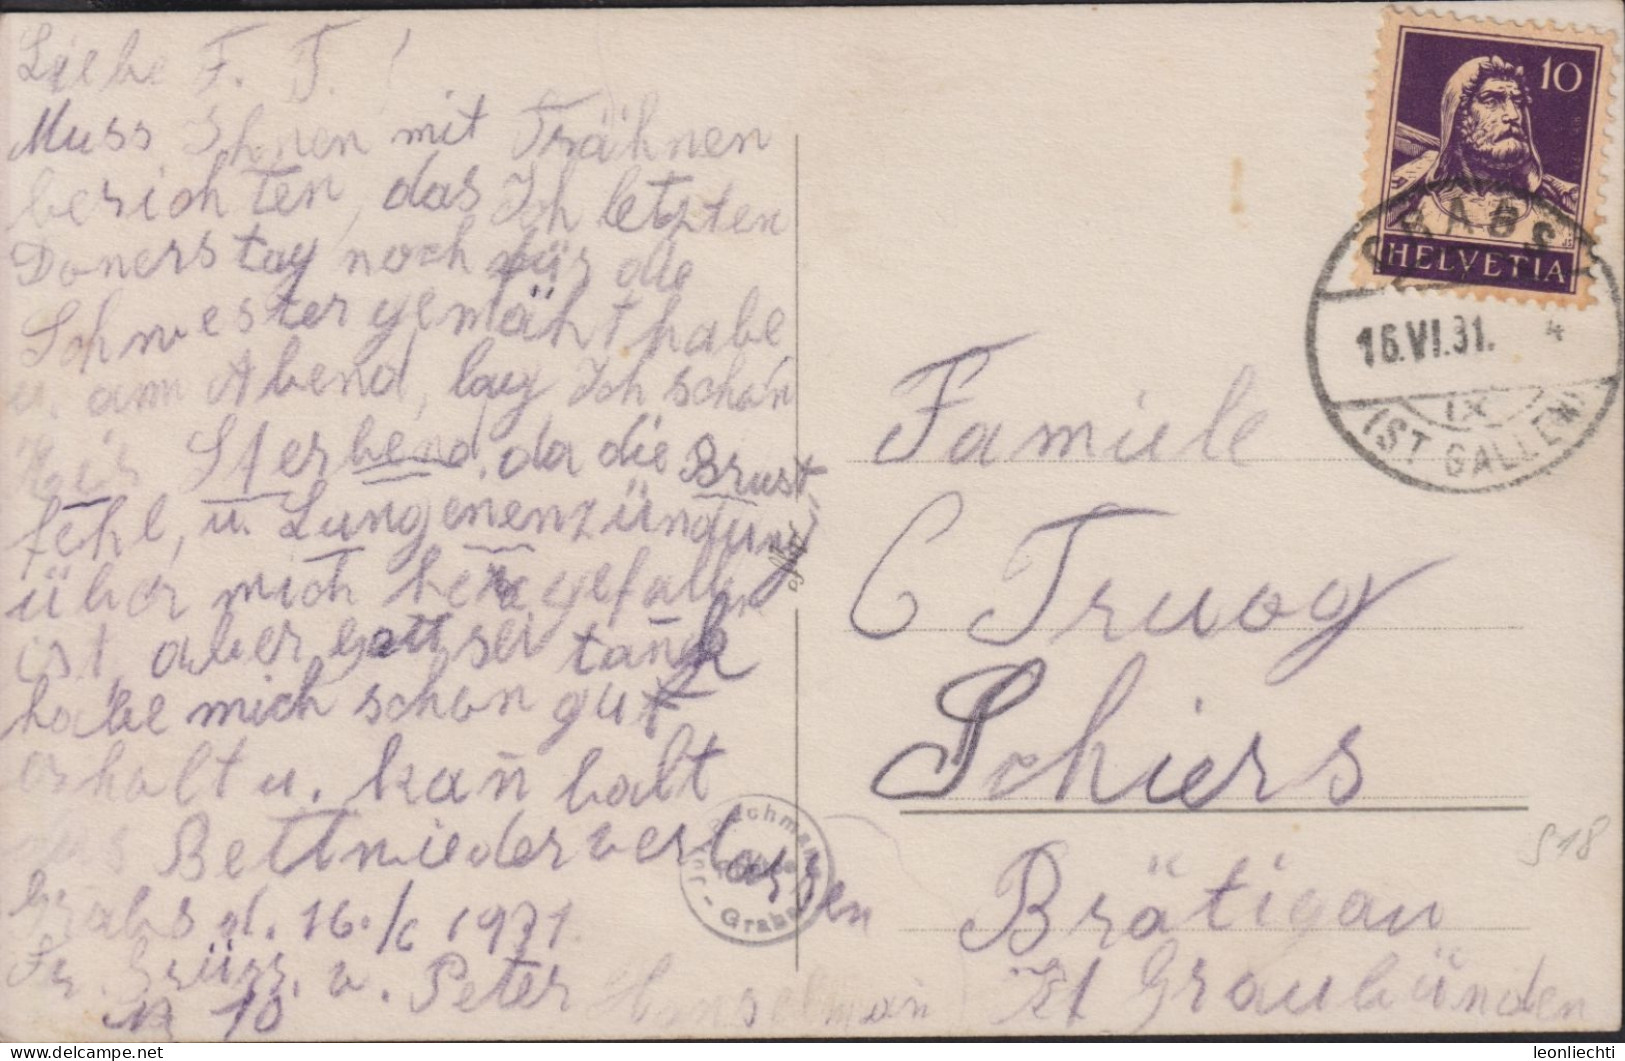 Liebe F. T. !
Muss Ihnen mit Trähnen
berichten, das Ich letzten
Donerstag noch für die
Schwester gemäht habe
u. am Abend, lag Ich schon
Sterbend, da die Brust
fehl, u. Lungenenzündung
über mich gefallen
ist, aber gott sei tank
habe mich schon gut
erholt u. kan̄ balt
das Bett wieder verlassen
Grabs d. 16./6 1931
Fr. Grüss. v. Peter Hanselman
N 10
10
HELVETIA
GRABS
16.VI.31. 4
IX
(ST GALLEN)
Familie
C Truog
Schiers
Brätigau
Kt Graubünden
Grabs
S18
leonliechti